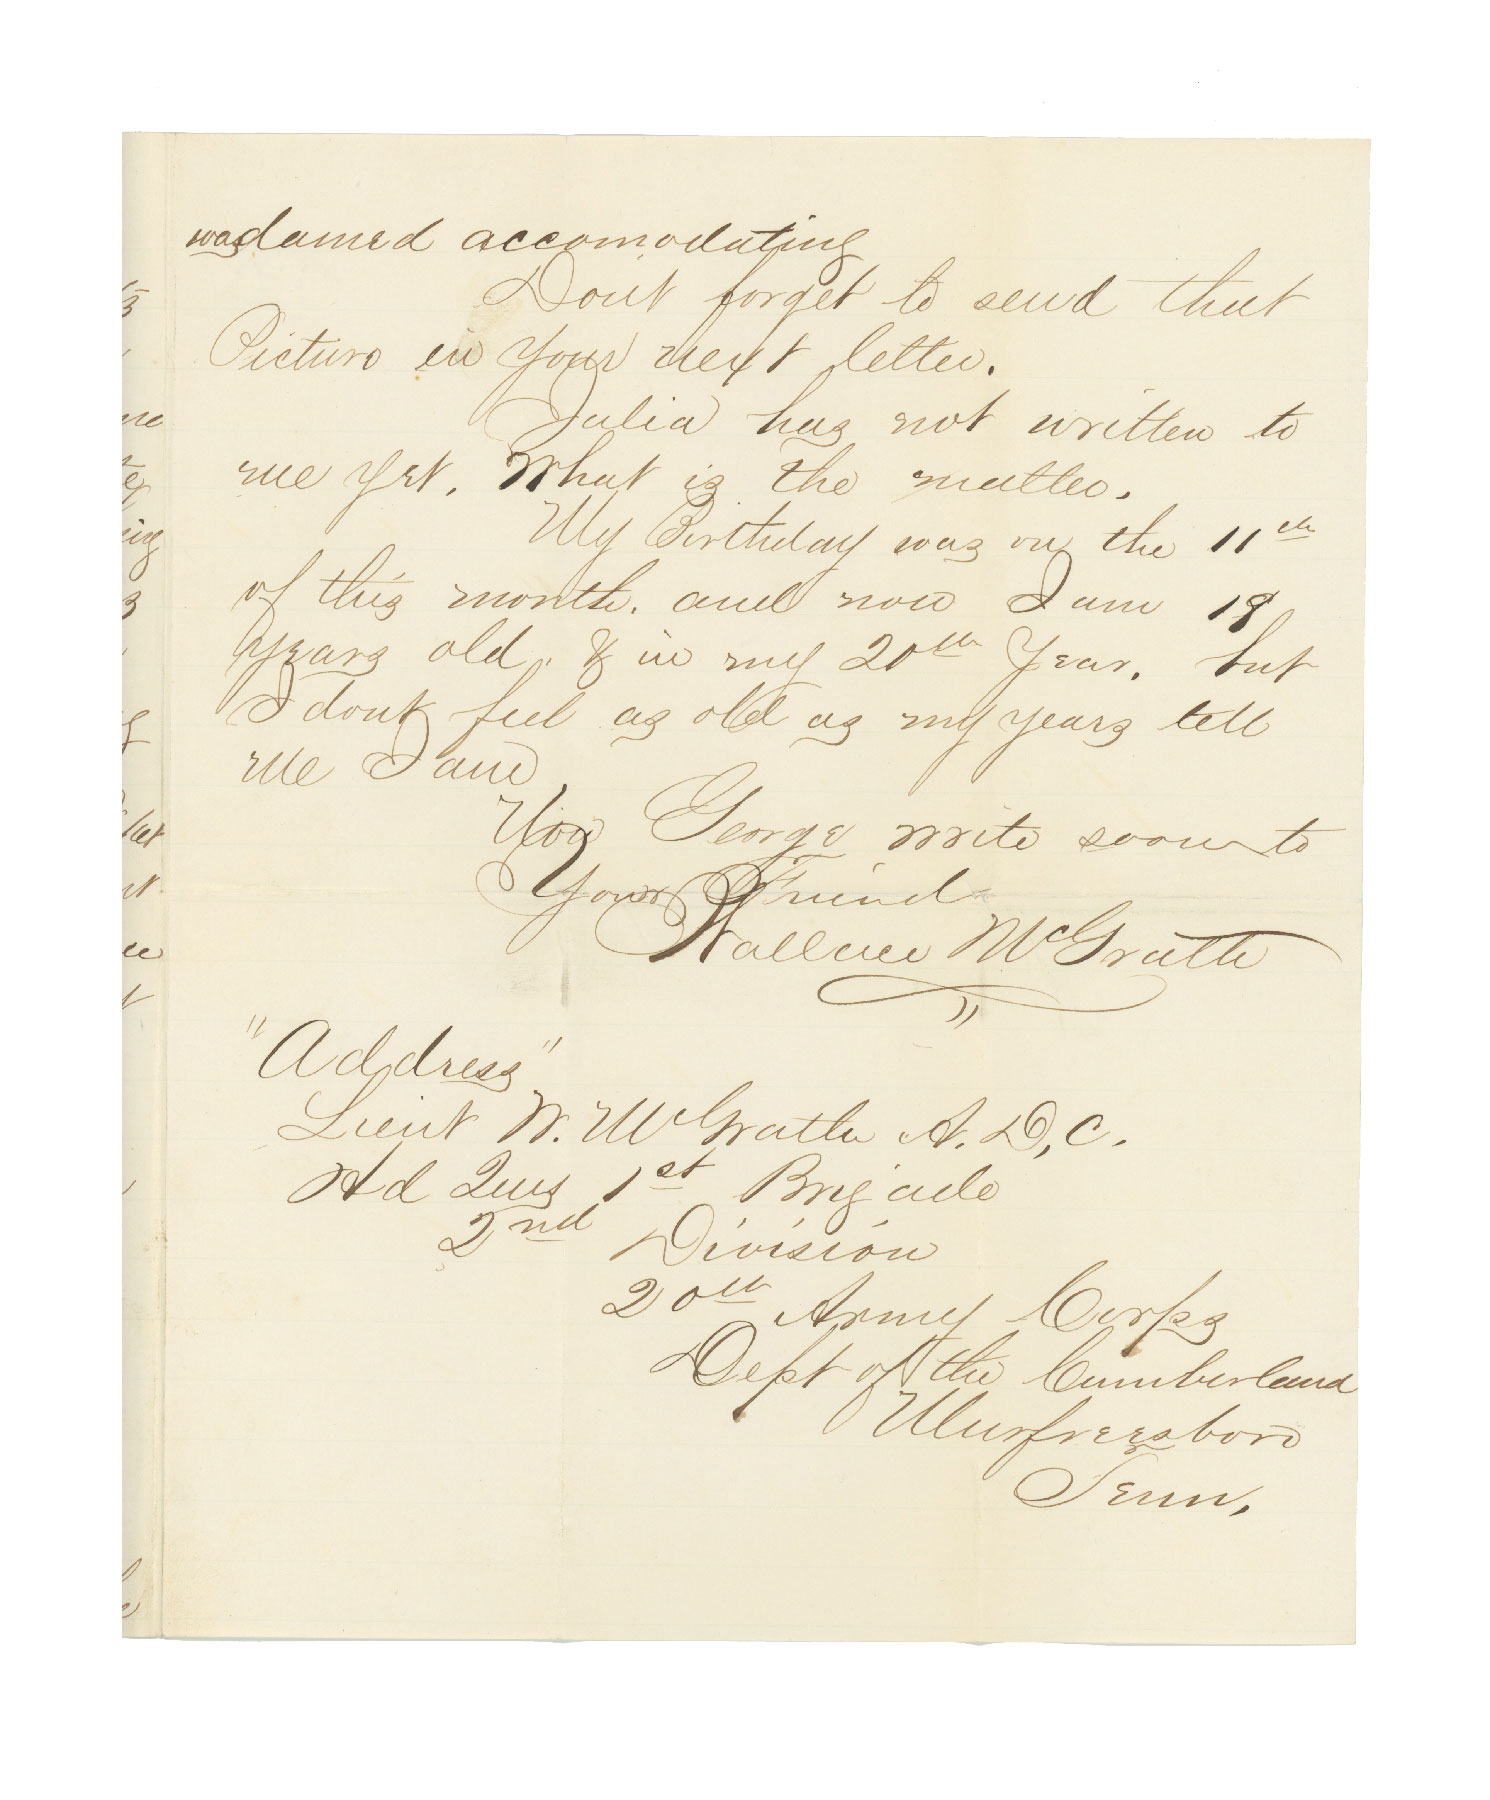 was damed accomodating
Dont forget to send that
Picture in your next letter.
Julia has not written to
me yet. What is the matter.
My Birthday was on the 11th
of this month. and now I am 19
years old. & in my 20th Year. but
I dont feel as old as my years tell
me I am
George write soon to
Your Friend
Wallace McGrath
"Address"
Lieut W. McGrath A. D, C.
Hd Qurs 1st Brigade
2nd Division
20th Army Corps
Dept of the Cumberland
Murfreesboro
Tenn.